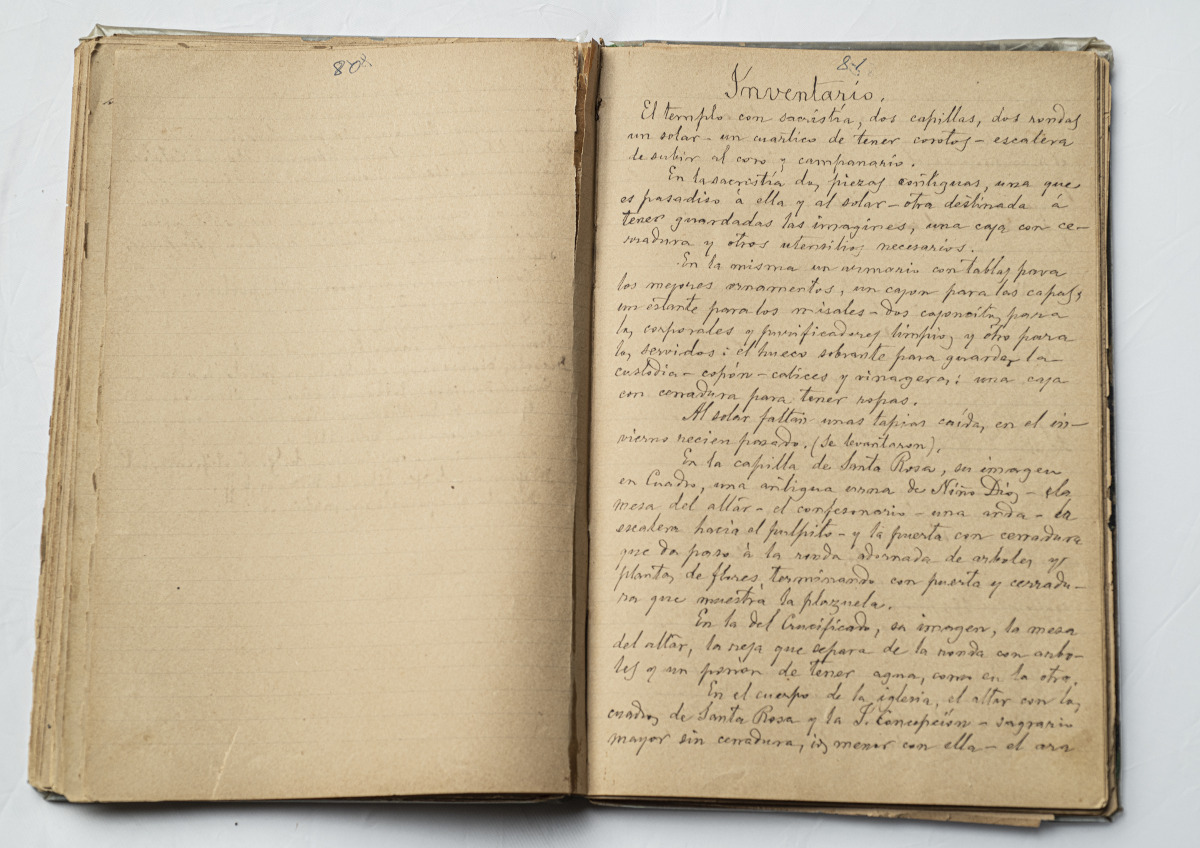 80.
81.
Inventario.
El templo con sacristía, dos capillas, dos rondas
un solar - un cuartico de tener corotos - escalera
de subir al coro y campanario.
En la sacristía dos piezas contiguas, una que
es pasadiso á ella y al solar - otra destinada á
tener guardadas las imagines, una caja con ce-
rradura y otros utensilios necesarios.
En la misma un armario con tablas para
los mejores ornamentos, un cajon para las capas y
un estante para los misales - dos cajoncitos para
los corporales y purificadores limpios y otro para
los servidos; el hueco sobrante para guardar la
custodia - copón - calices y vinageras; una caja
con cerradura para tener ropas.
Al solar faltan unas tapias caídas en el in-
vierno recien pasado. (Se levantaron).
En la capilla de Santa Rosa, su imagen
en Cuadro, una antigua urna de Niño Dios - la
mesa del altar - el confesonario - una anda - la
escalera hacia el pulpito - y la puerta con cerradura
que da paso á la ronda adornada de arboles y
plantas de flores, terminando con puerta y cerradu-
ra que muestra la plazuela.
En la del Crucificado, su imagen, la mesa
del altar, la reja que separa de la ronda con arbo-
les y un de tener agua, como en la otra.
En el cuerpo de la iglesia, el altar con los
cuadros de Santa Rosa y la I. Concepción - sagrario
mayor sin cerradura, id menor con ella - el ara